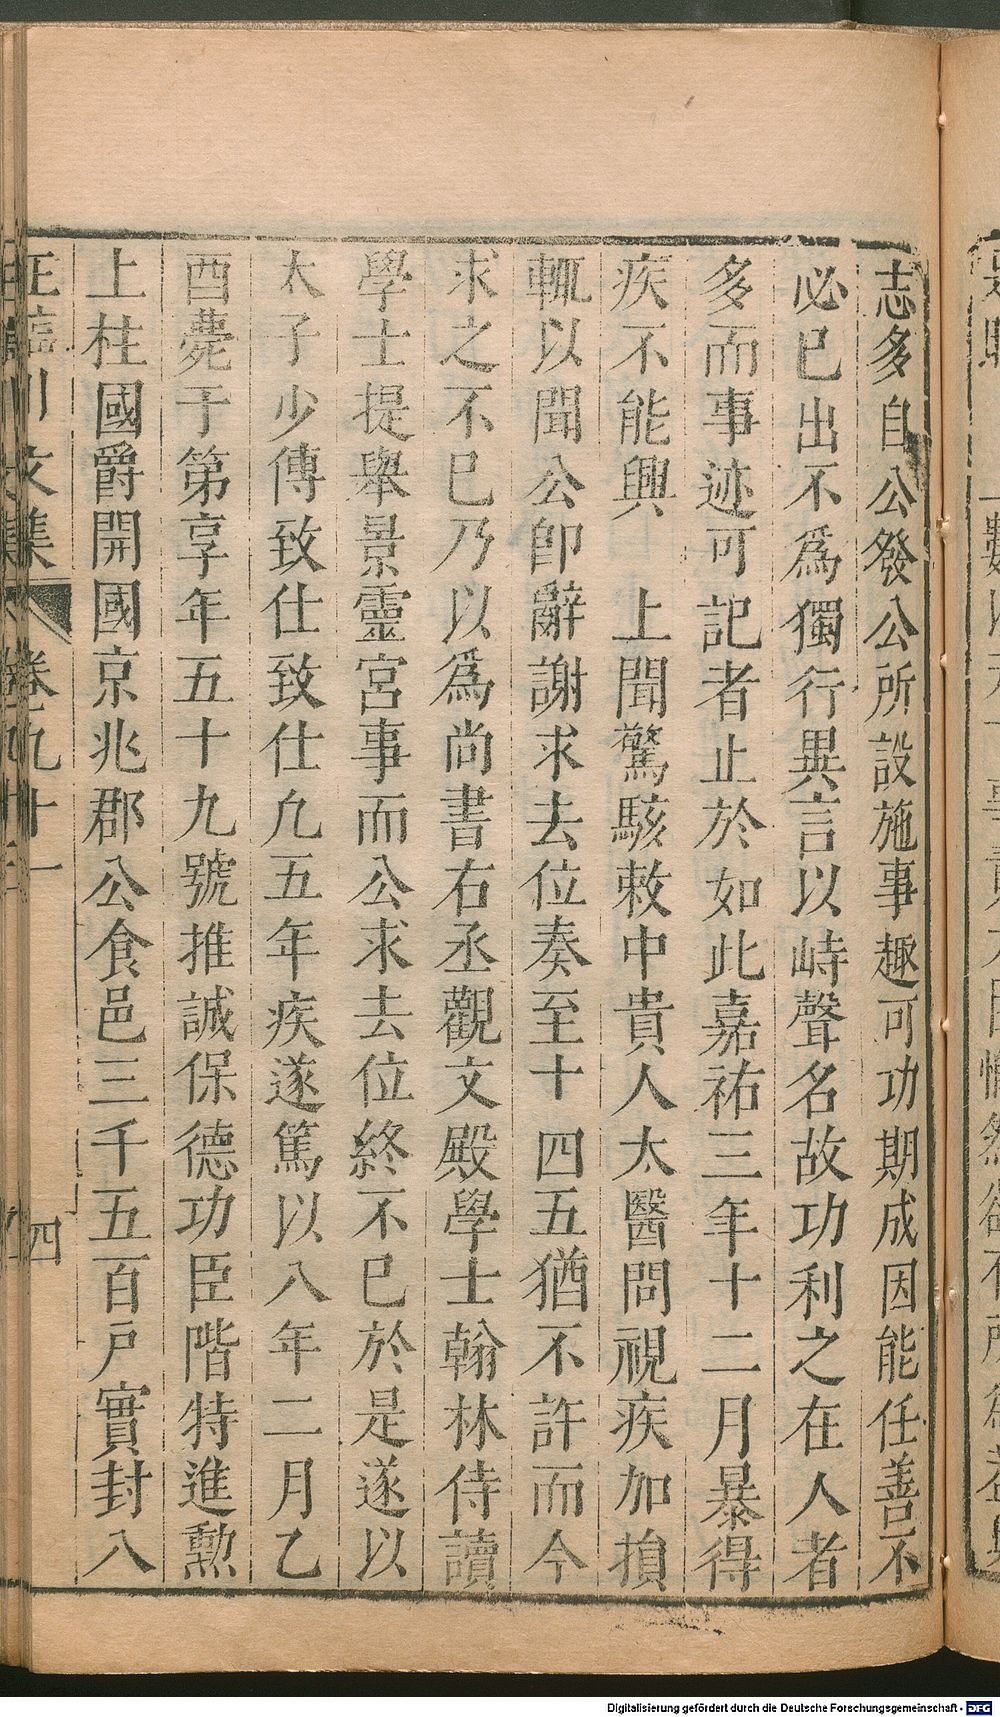 志多自公發公所設施事趣可功期成因能任善不
必已出不爲獨行異言以峙聲名故功利之在人者
多而事迹可記者止於如此嘉祐三年十二月暴得
疾不能興　上聞驚駭敕中貴人太醫問視疾加損
輒以聞公卽辭謝求去位奏至十四五猶不許而今
求之不已乃以爲尚書右丞觀文殿學士翰林侍讀
學士提舉景靈宮事而公求去位終不已於是遂以
太子少傅致仕致仕凢五年疾遂篤以八年二月乙
酉薨于第享年五十九號推誠保德功臣階特進勳
上柱國爵開國京兆郡公食邑三千五百戶實封八
文集 卷九十一 四
Digitalisierung gefördert durch die Deutsche Forschungsgemeinschaft - DFG